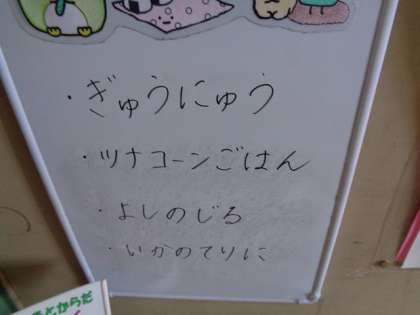 ・ぎゅうにゅう
・ツナコーンごはん
・よしのじる
・いかのてりに
とからだ